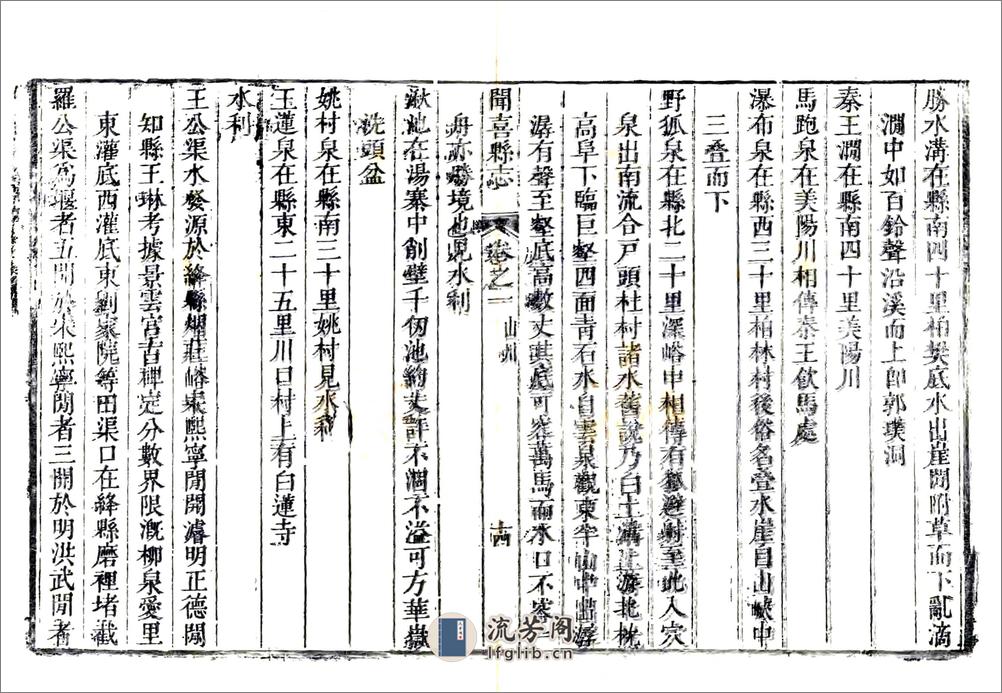 勝水溝在縣南四十里柏獎底水出崖間附草而下亂滴
澗中如百鈴聲沿溪而上即郭璞洞
秦王澗在縣南四十里美陽川
馬跑泉在美陽川相傳秦王飲馬處
瀑布泉在縣西三十里柏林村後俗名叠水崖自山峽中
三叠而下
野狐泉在縣北二十里深峪中相傳有避射至此入穴
泉出南流合戸頭杜村諸水舊說乃白土溝上游北枕
高阜下臨巨壑四面青石水自雲泉觀東半山中出潺
潺有聲至壑底高數丈其底可容萬馬而水口不容
舟亦勝境也見水利
湫池在湯寨中削壁千仞池約丈許不涸不溢可方華嶽
洗頭盆
姚村泉在縣南三十里姚村見水利
玉蓮泉在縣東二十五里川口村上有白蓮寺
水利
王公渠水發源於絳縣煙莊峪宋熙寧間開濬明正德間
知縣王琳考據景雲宮古碑定分數界限漑柳泉愛里
東灌底西灌底東劉家院等田渠口在絳縣磨裡堵截
羅公渠爲堰者五開於宋熙寧間者三開於明洪武間者
聞喜縣志 卷之一 山川 十四
流芳阁
lfglib.cn